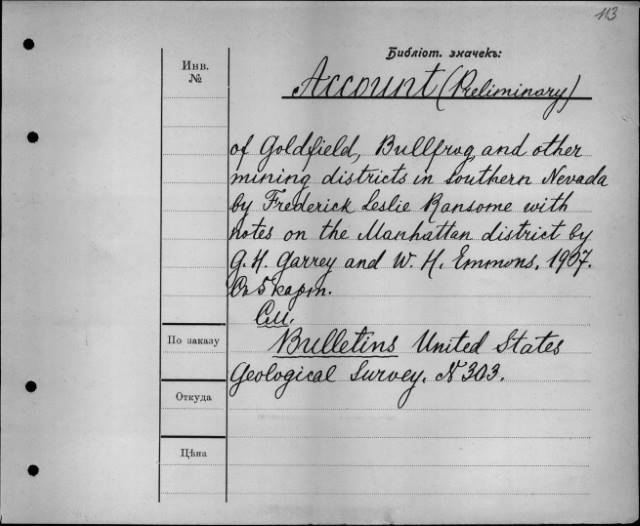 113
Библіот. значекъ:
Инв.
№
Account (Preliminary)
of Goldfield, Bullfrog, and other
mining districts in Southern Nevada
by Frederick Leslie Ransome with
notes on the Manhattan district by
G. H. Garrey and W. H. Emmons. 1907.
Съ 5 карт.
См.
По заказу
Bulletins United States
Geological Survey. N 303.
Откуда
Цѣна